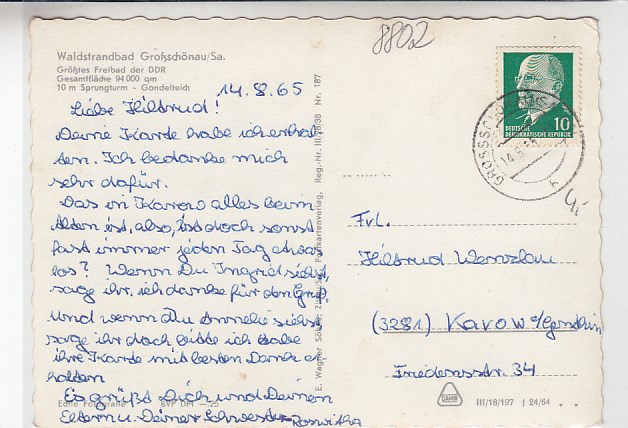 8802
Waldstrandbad Großschönau/Sa.
Größtes Freibad der DDR
Gesamtfläche 94 000 qm
10 m Sprungturm - Gondelteich
14.8.65
Liebe Hiltrud!
Deine Karte habe ich erhal
ten. Ich bedanke mich
sehr dafür.
Das in Karow alles beim
Alten ist, also, ist doch sonst
fast immer jeden Tag etwas
los? Wenn Du Ingrid siehst,
sage ihr, ich danke für den Gruß,
und wenn Du Annelie siehst
sage ihr doch bitte ich habe
ihre Karte mit besten Dank er
halten
Es grüßt Dich und Deinen
Eltern u. Deiner Schwester Roswitha
Echte Fotografie
E. Wagner Söhne, Postkartenverlag, Reg.-Nr. III/26/38 Nr. 187
DEUTSCHE
DEMOKRATISCHE REPUBLIK
10
Frl.
Hiltrud Wenzlau
(3281) Karow ü/Genthin
Friedensstr. 34
III/18/197 J 24/64